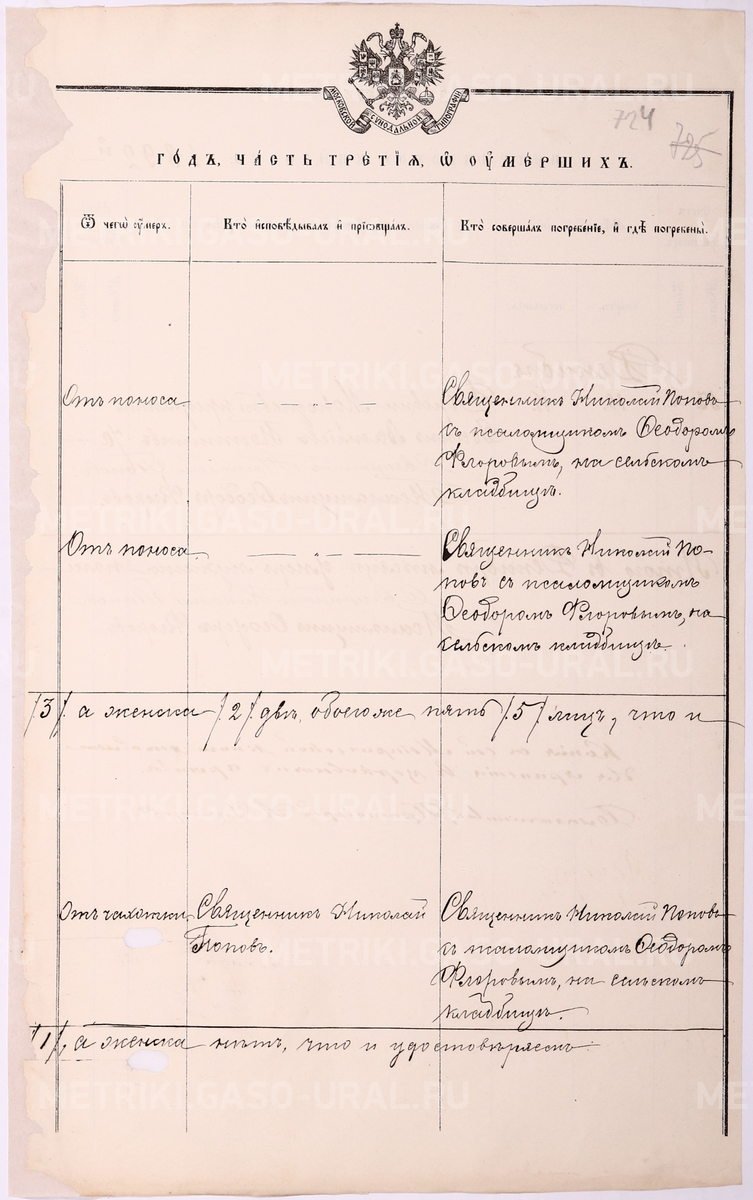 МОСКОВСКОЙ СѴНОДАЛЬНОЙ ТИПОГРАФІИ
724
725
ГО́ДЪ, ЧА́СТЬ ТРЕ́ТІѦ, Ѿ ОУ҆МЕ́РШИХЪ.
Ѿ чегѡ̀ оу҆́меръ.
Кто̀ и҆сповѣ́дывалъ и҆ прїѡбща́лъ.
Кто̀ соверша́лъ погребе́нїе, и҆ гдѣ̀ погребены̀.
Отъ поноса
Священникъ Николай Поповъ
съ псаломщикомъ Ѳеодоромъ
Флоровымъ, на сельскомъ
кладбищѣ.
Отъ поноса
Священникъ Николай По-
повъ съ псаломщикомъ
Ѳеодоромъ Флоровымъ, на
сельскомъ кладбищѣ.
/3/. а женска /2/ двѣ, обоего же пять /5/ лицъ, что и
Отъ чахотки
Священникъ Николай
Поповъ.
Священникъ Николай Поповъ
съ псаломщикомъ Ѳеодоромъ
Флоровымъ, на сельскомъ
кладбищѣ.
/1/, а женска нѣтъ, что и удостовѣряемъ
METRIKI.GASO-URAL.RU